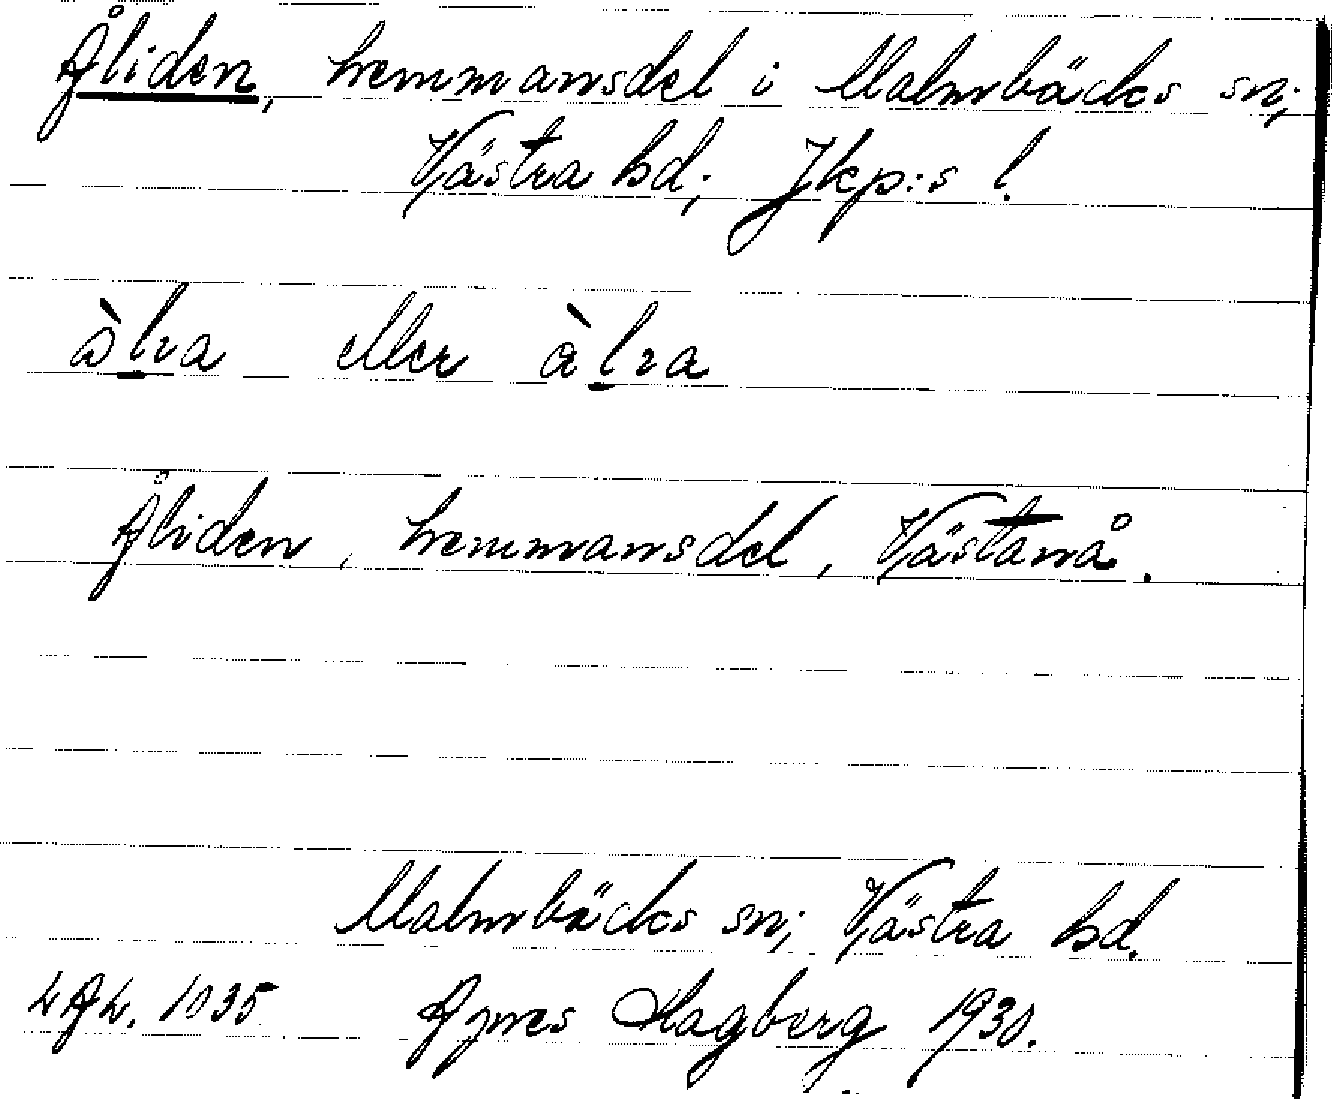 Åliden, hemmansdel i Malmbäcks sn;
Västra hd; Jkp:s l.
àlra eller àlra
Åliden, hemmansdel, Västanå.
Malmbäcks sn; Västra hd.
LAL. 1035 Agnes Hagberg 1930.